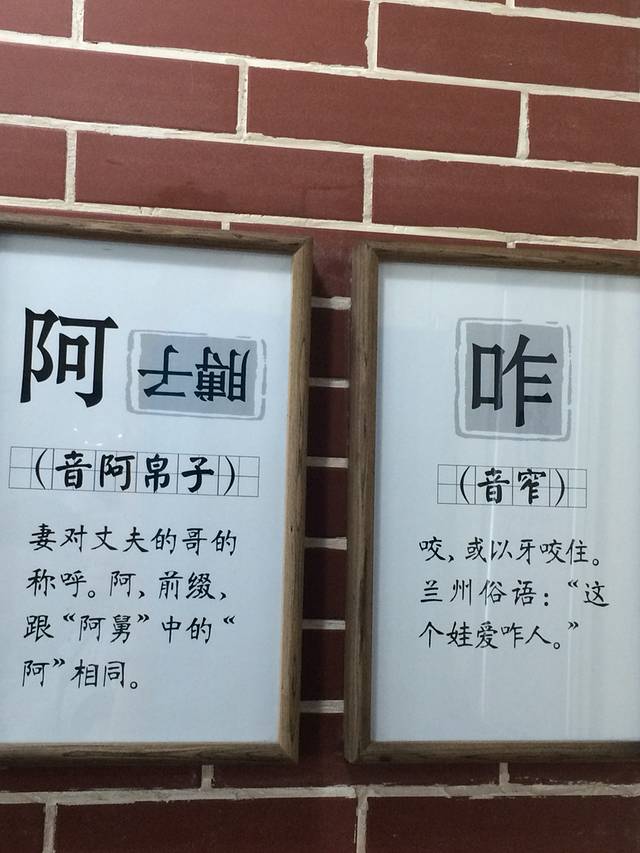 阿 子
（音阿帛子）
妻对丈夫的哥的
称呼。阿，前缀，
跟“阿舅”中的“
阿”相同。
咋
（音窄）
咬，或以牙咬住。
兰州俗语：“这
个娃爱咋人。”